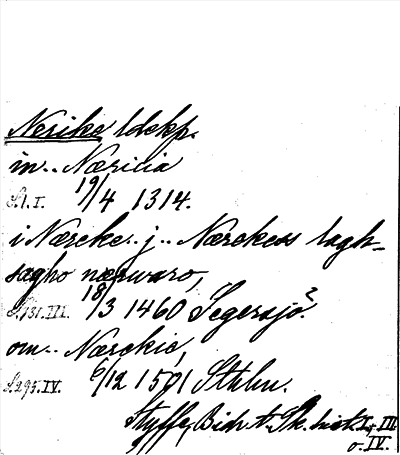 Nerike ldskp.
in.. Næricia
S. 1. I. 19/4 1314.
i Nærcke.. j.. Nærckess lagh-
sagho nærwaro,
S. 131. III. 18/3 1460 Segersjö?
om.. Nærckie,
S. 295. IV. 6/12 1501 Sthlm.
Styffe, Bidr. t. Sk. hist. I, III
o. IV.